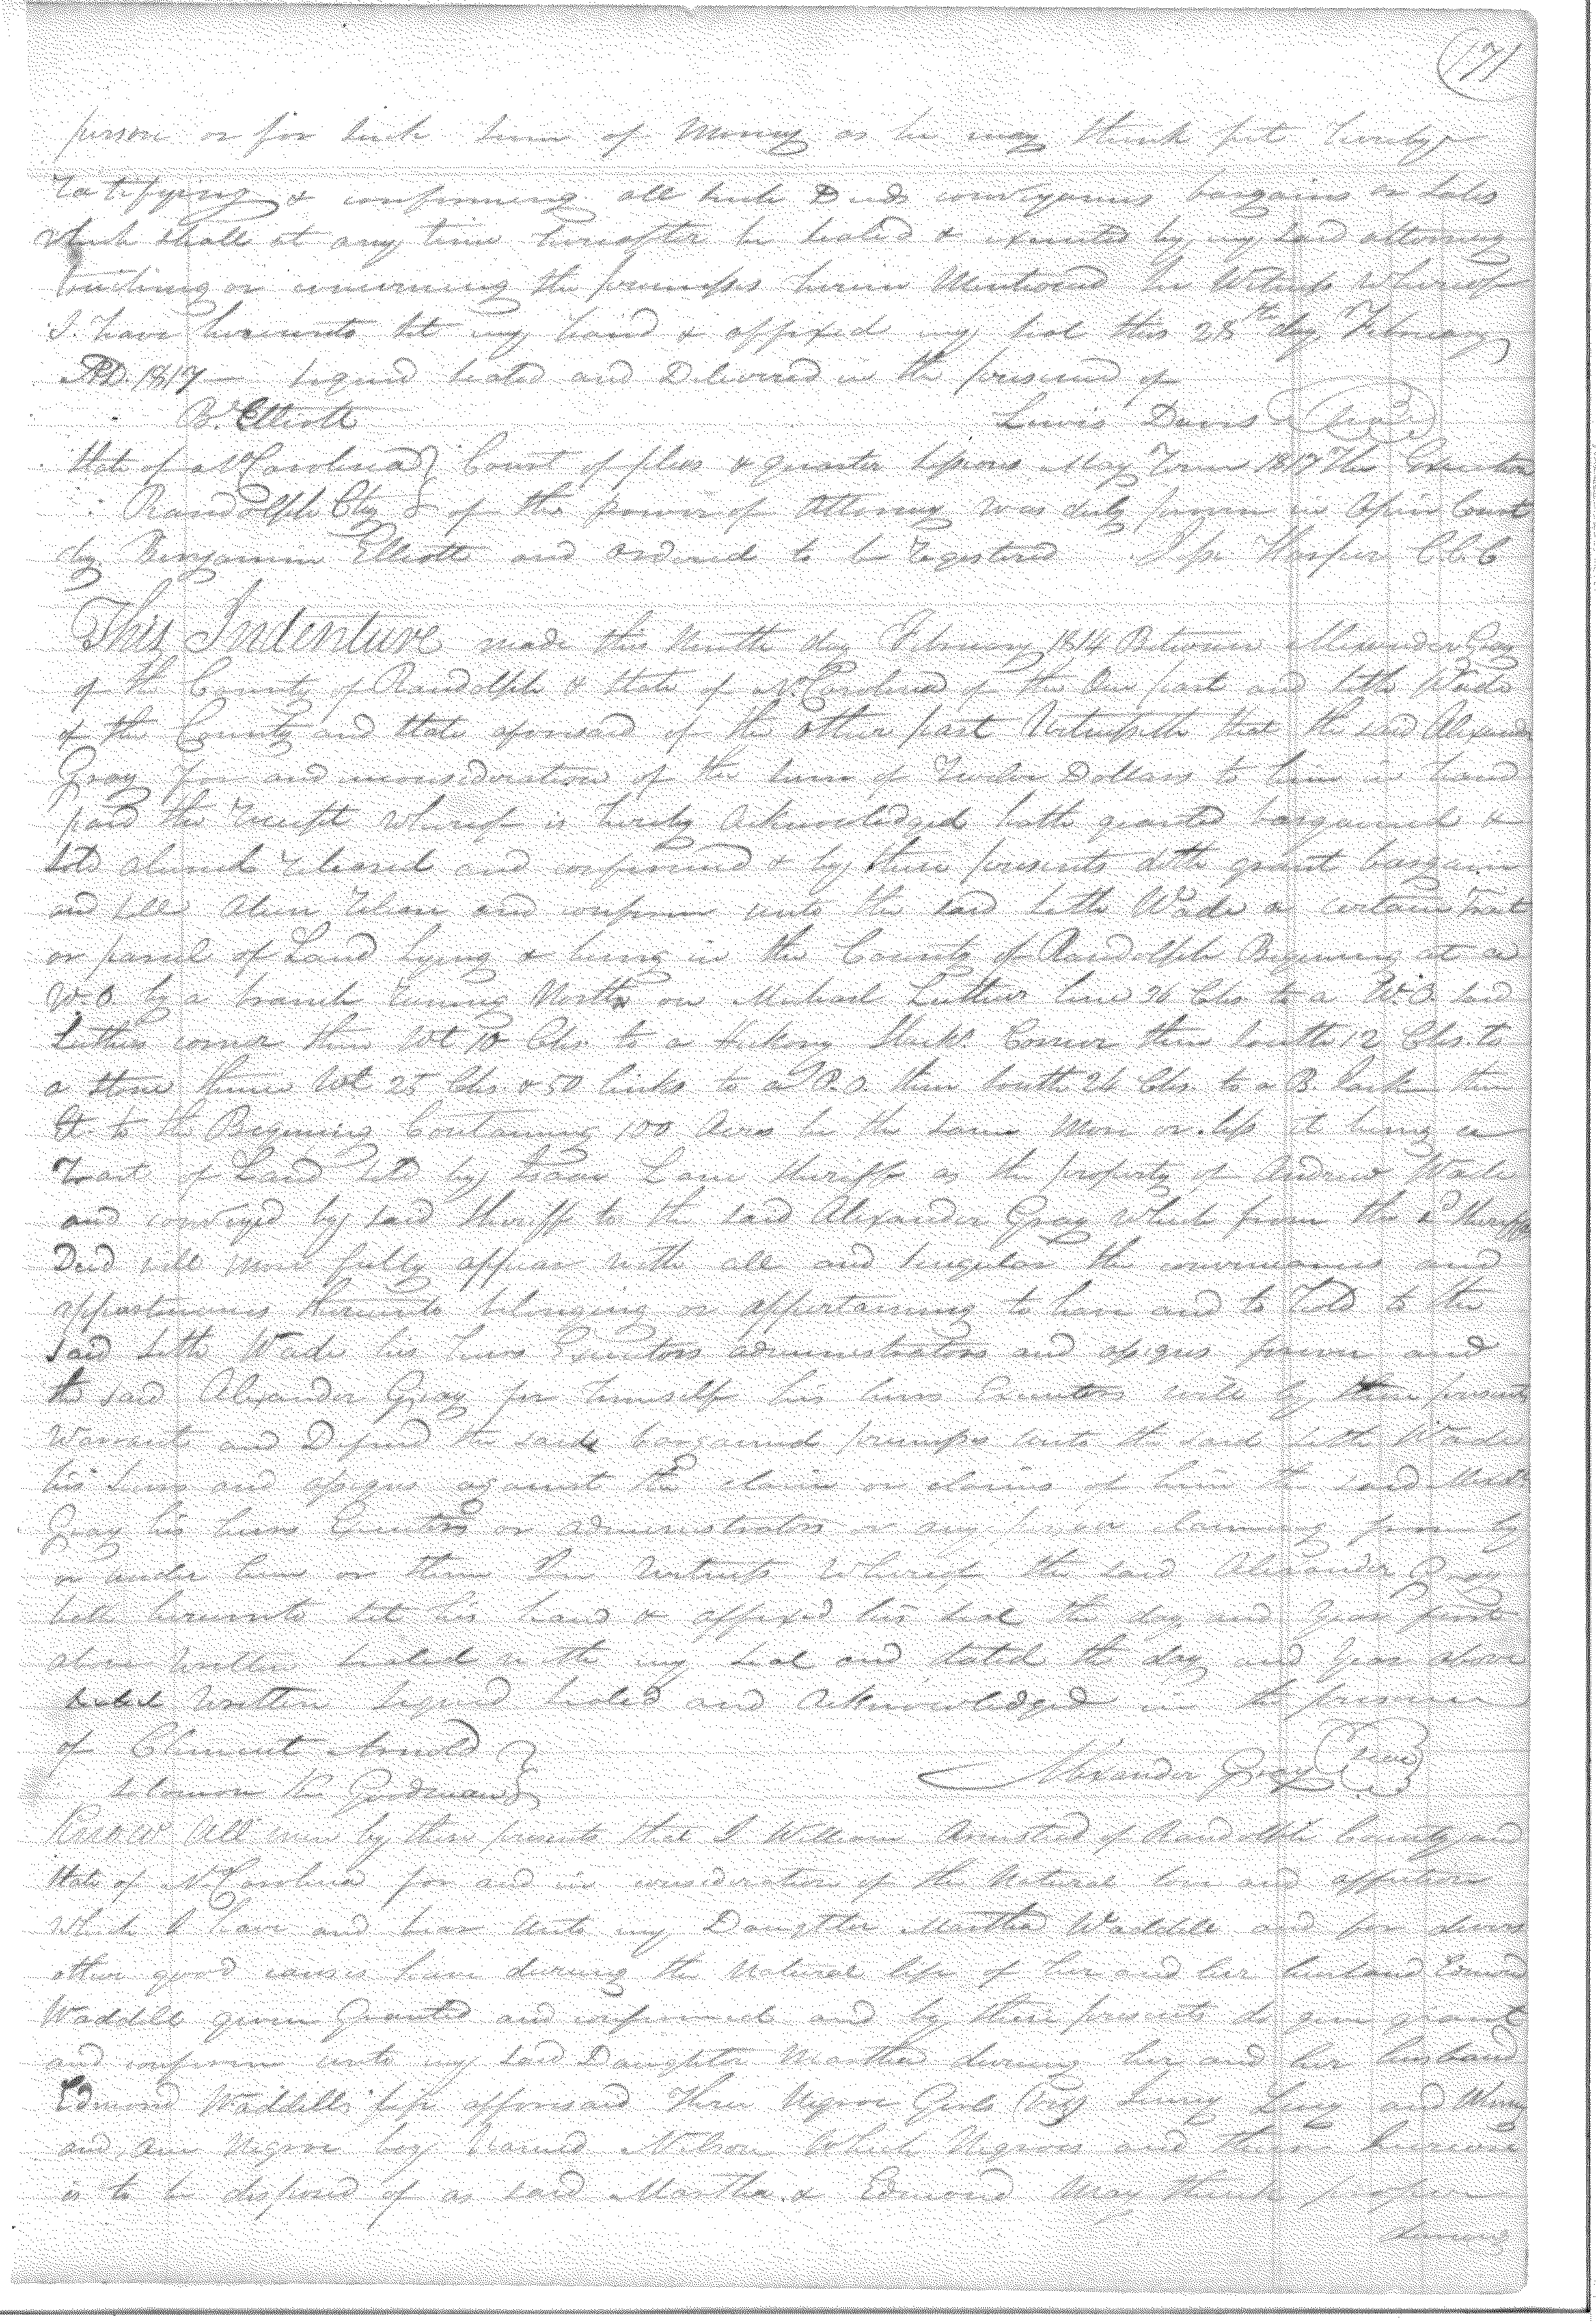 171
person or for such sum of Money as he may think fit hereby
ratifying & confirming all such Deeds conveyances bargains or sales
which shall at any time hereafter be sealed & executed by my said attorney
touching or concerning the premises herein Mentioned In Witness Whereof
I have hereunto set my hand & affixed my seal this 28th day February
AD. 1817 — Signed sealed and Delivered in the presence of
B. Elliott Lewis Davis Seal
State of No Carolina } Court of pleas & quarter sessions May Term 1817 The Execution
Randolph Cty } of the power of Attorney was duly proven in Open Court
by Benjamin Elliott and Ordered to be Registered Jesse Harper C.C.C
This Indenture made this Ninth day February 1814 Between Alexander Gray
of the County of Randolph & State of No. Carolina of the One part and Seth Wade
of the County and State aforesaid of the other part Witnesseth that the said Alexander
Gray for and inconsideration of the sum of Twelve Dollars to him in hand
paid the Receipt Whereof is hereby Acknowledged hath granted bargained &
Sold aliened released and confirmed & by these presents doth grant bargain
and sell alien release and confirm unto the said Seth Wade a certain Tract
or parcel of Land lying & being in the County of Randolph Begining at a
W.O. by a branch Runing North on Michael Luthers line 26 Chs to a W.O. said
Luthers corner then Wt 10 Chs. to a Hickory Corner then South 12 Chs. to
a stone thence Wt 25 Chs. & 50 links to a P.O. then South 24 Chs. to a B Jack then
Et. to the Begining Containing 100 Acres be the same More or less it being a
Tract of Land Sold by Isaac Lane Sheriff as the property of Andrew Wade
and conveyed by said Sheriff to the said Alexander Gray Which from the sd Sheriffs
Deed will more fully appear with all and singular the conveniences and
appurtinances thereunto belonging or appertaining to have and to hold to the
said Seth Wade his heirs Executors administrators and assigns forever and
the said Alexander Gray for himself his heirs Executors will by these presents
Warrant and Defend the said bargained premises unto the said Seth Wade
his heirs and assigns against the claim or claims of him the said
Gray his heirs Executors or administrators or any person claiming from by
or under him or them In Witness Whereof the said Alexander Gray
hath hereunto set his hand & affixed his seal the day and year first
above written Sealed with my seal and dated the day and year above
written Signed Sealed and Acknowledged in the presence
of Clement Arnold }
Solomon K Goodman } Alexander Gray Seal
Know All men by these presents that I William Armstead of Randolph County and
State of No Carolina for and in consideration of the Natural love and affection
Which I have and bear unto my Daughter Martha Waddill and for divers
other good causes have during the Natural life of her and her husband Edmond
Waddill given Granted and confirmed and by these presents do give grant
and confirm unto my said Daughter Martha during her and her husband
Edmond Waddills life afforesaid Three Negroe Girls (Viz) Lucy and Winny
and one Negroe boy Named Nelson Which Negroes and their Increase
is to be disposed of as said Martha & Edmond May think proper
during